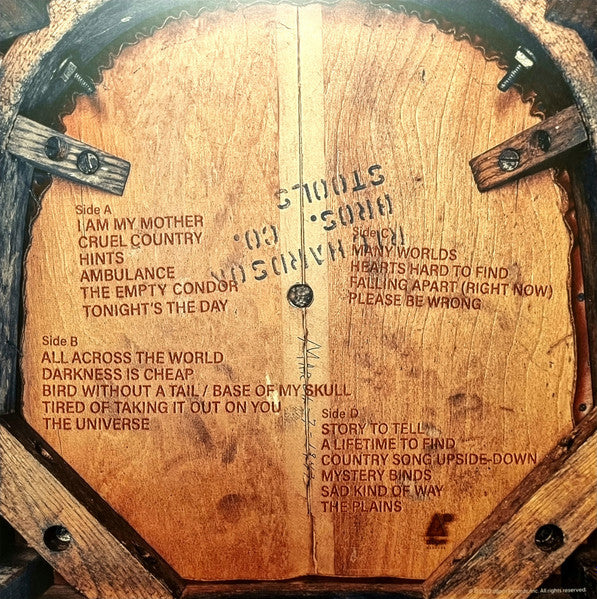 Side A
I AM MY MOTHER
CRUEL COUNTRY
HINTS
AMBULANCE
THE EMPTY CONDOR
TONIGHT'S THE DAY
Side B
ALL ACROSS THE WORLD
DARKNESS IS CHEAP
BIRD WITHOUT A TAIL / BASE OF MY SKULL
TIRED OF TAKING IT OUT ON YOU
THE UNIVERSE
RICHARDSON
BROS. CO.
STOOLS
Side C
MANY WORLDS
HEARTS HARD TO FIND
FALLING APART (RIGHT NOW)
PLEASE BE WRONG
Side D
STORY TO TELL
A LIFETIME TO FIND
COUNTRY SONG UPSIDE-DOWN
MYSTERY BINDS
SAD KIND OF WAY
THE PLAINS
All rights reserved.